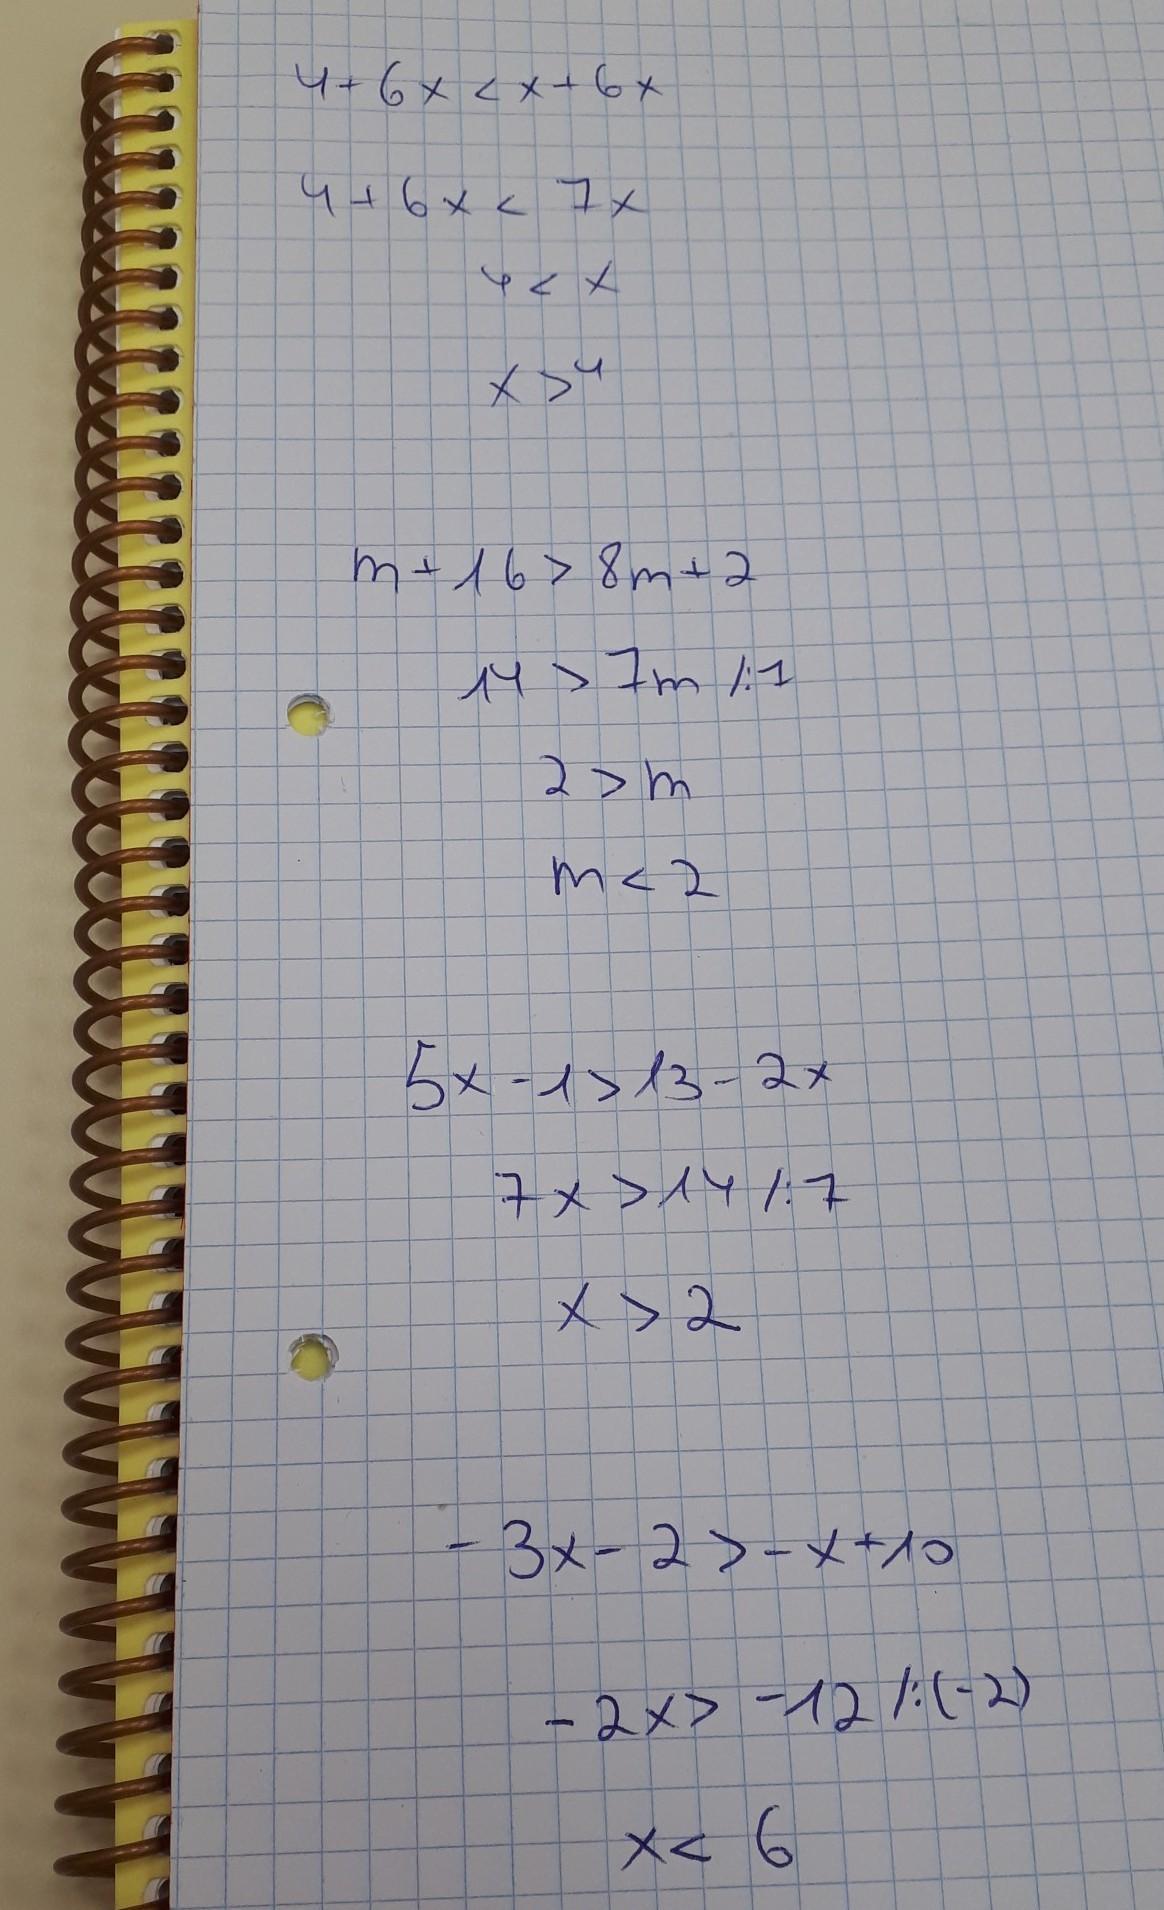 4+6x<x+6x
4+6x< 7x
4< x
x>4
m+16>8m+2
14 > 7m /:7
2>m
m<2
5x-1>13-2x
7x>14/:7
x>2
-3x-2>-x+10
-2x> -12/:(-2)
x< 6